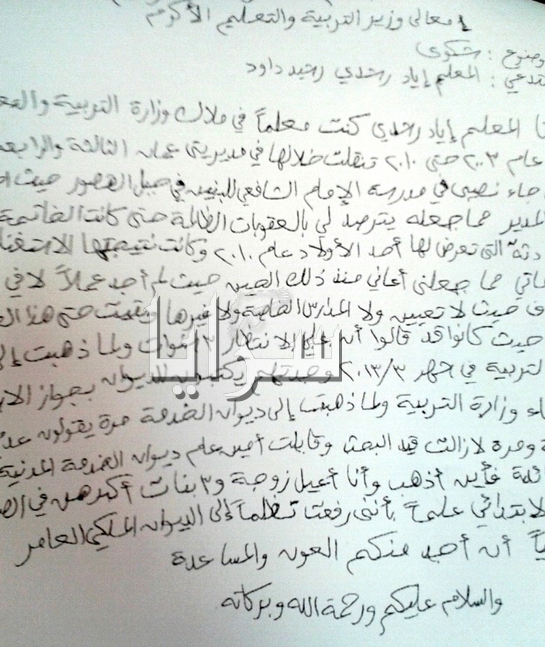 معالي وزير التربية والتعليم الأكرم
وضوع : شكوى
ستدعي : المعلم إياد رشدي رشيد داود
نا المعلم إياد رشدي كنت معلماً في ملاك وزارة التربية والتع
عام ٢٠٠٣ حتى ٢٠١٠ تنقلت خلالها في مديريتي عمان الثالثة والرابعة
جاء نصيبي في مدرسة الإمام الشافعي للبنين في جبل القصور حيث
المدير مما جعله يترصد لي بالعقوبات الظالمة حتى كانت الخاتمة
دثة التي تعرض لها أحد الأولاد عام ٢٠١٠ وكانت نتيجتها الاستغنا
ماتي مما جعلني أعاني منذ ذلك الحين حيث لم أجد عملاً لا في
ف حيث لا تعيين ولا المدارس الخاصة ولا غيرها وبقيت حتى هذا
حيث كانوا قد قالوا أن علي الانتظار ٣ سنوات ولما ذهبت إلى
التربية في شهر ٢٠١٣/٣ وجدتهم يكتبون للديوان بجواز
اء وزارة التربية ولما ذهبت إلى ديوان الخدمة مرة يقولون
ة ومرة لا زالت قيد البحث وقابلت أمين عام ديوان الخدمة المدنية
ئدة فأين أذهب وأنا أعيل زوجة و٣ بنات أكبرهن في الص
لابتدائي علماً بأنني رفعت تظلماً إلى الديوان الملكي العامر
ياً أن أجد منكم العون والمساعدة
والسلام عليكم ورحمة الله وبركاته
سرايا